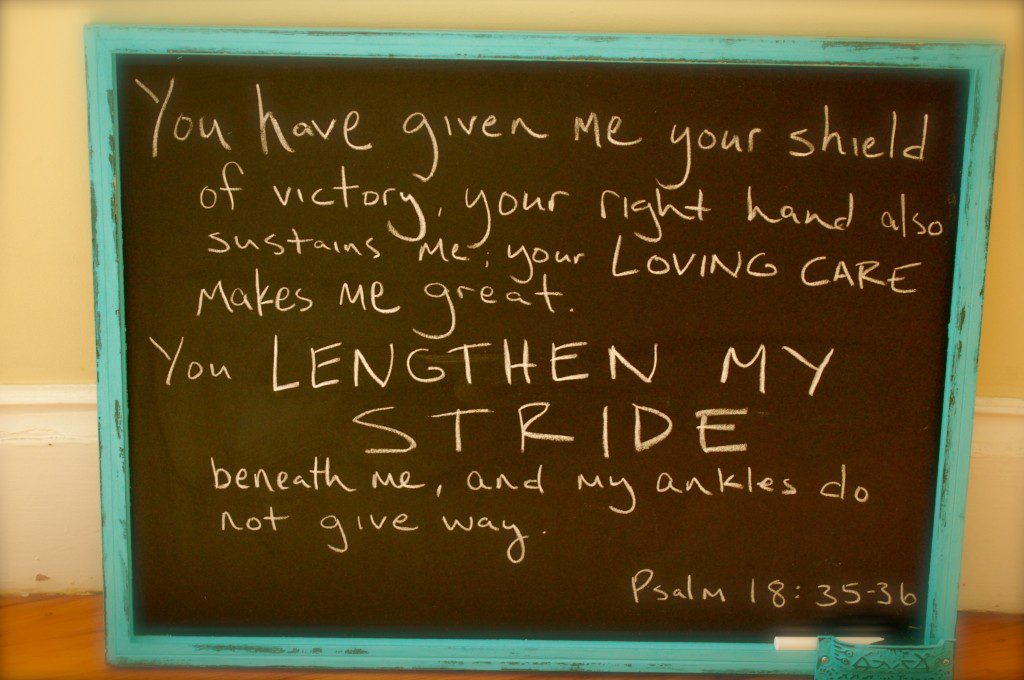 You have given me your shield
of victory, your right hand also
sustains me; your LOVING CARE
makes me great.
You LENGTHEN MY
STRIDE
beneath me, and my ankles do
not give way.
Psalm 18:35-36